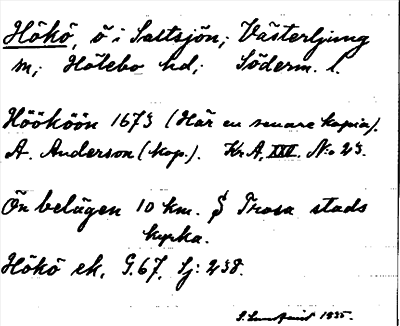 Hökö, ö i Saltsjön; Västerljung
sn; Hölebo hd; Söderm. l.
Höököön 1673 (Här en senare kopia).
A. Anderson (kop.). Kr.A, XXII. No 23.
Ön belägen 10 km. S Trosa stads
kyrka.
Hökö ek. G.67. Sj: 238.
S. Lundquist 1935.